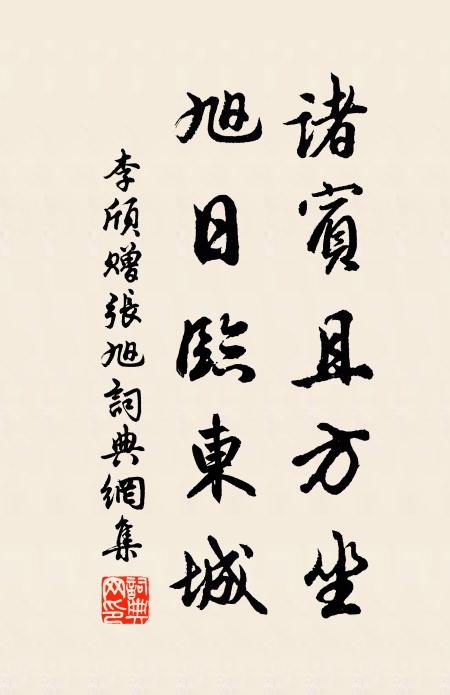 諸賓且方坐
旭日臨東城
李頎贈張旭詞典網集
詞典網印